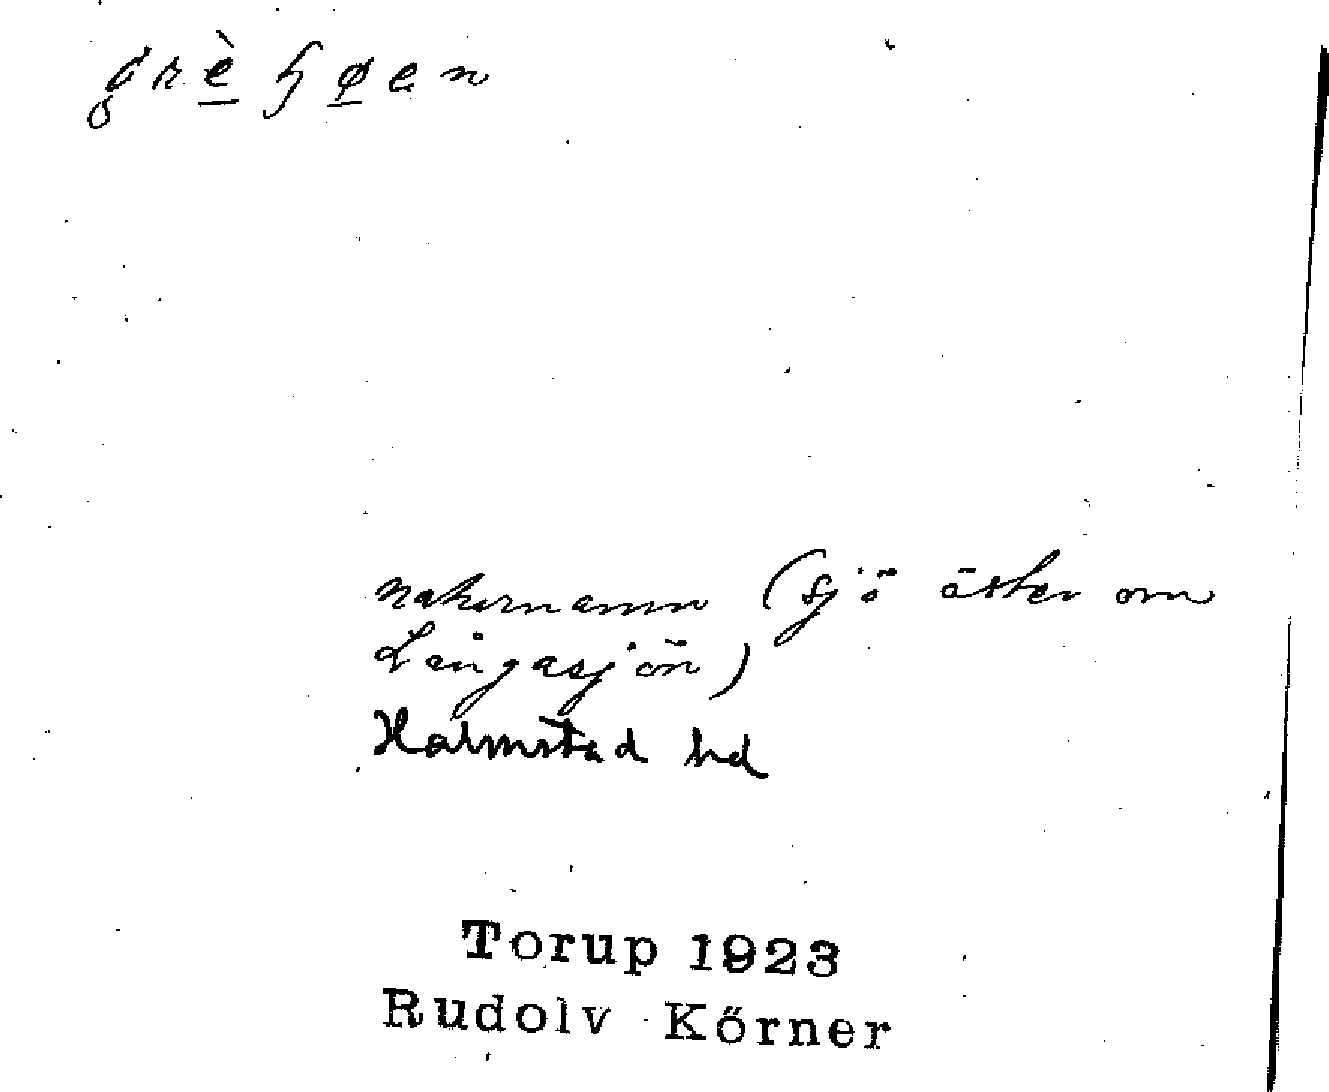 grèɧøen
naturnamn (sjö öster om
Långasjön)
Halmstad hd
Torup 1923
Rudolv Körner